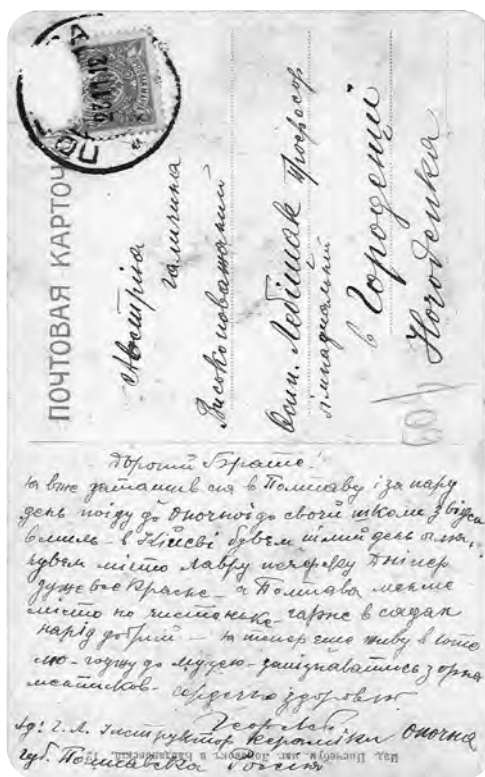 ПОЧТОВАЯ КАРТОЧ
ПОЛ
23 11 12
Австрія
галичина
Високоповажаний
Осип. Лебіщак Професор
гімназіальний
в Городенці
Horodenka
60
Дорогий Брате!
Я вже затащив ся в Полтаву і за пару
день поїду до Опочної до своєї школи з відси
миль - в Києві бувем цілий день
місто лавру печерску Дніпер
дуже все красне - а Полтава менше
місто но чистеньке - гарне в садах
нарід добрий - я тепер еще живу в
ходжу до музею - запізнавались з
сердечно здоров
Ад: Інструктор кераміки Опочна
губ. Полтавска Россія